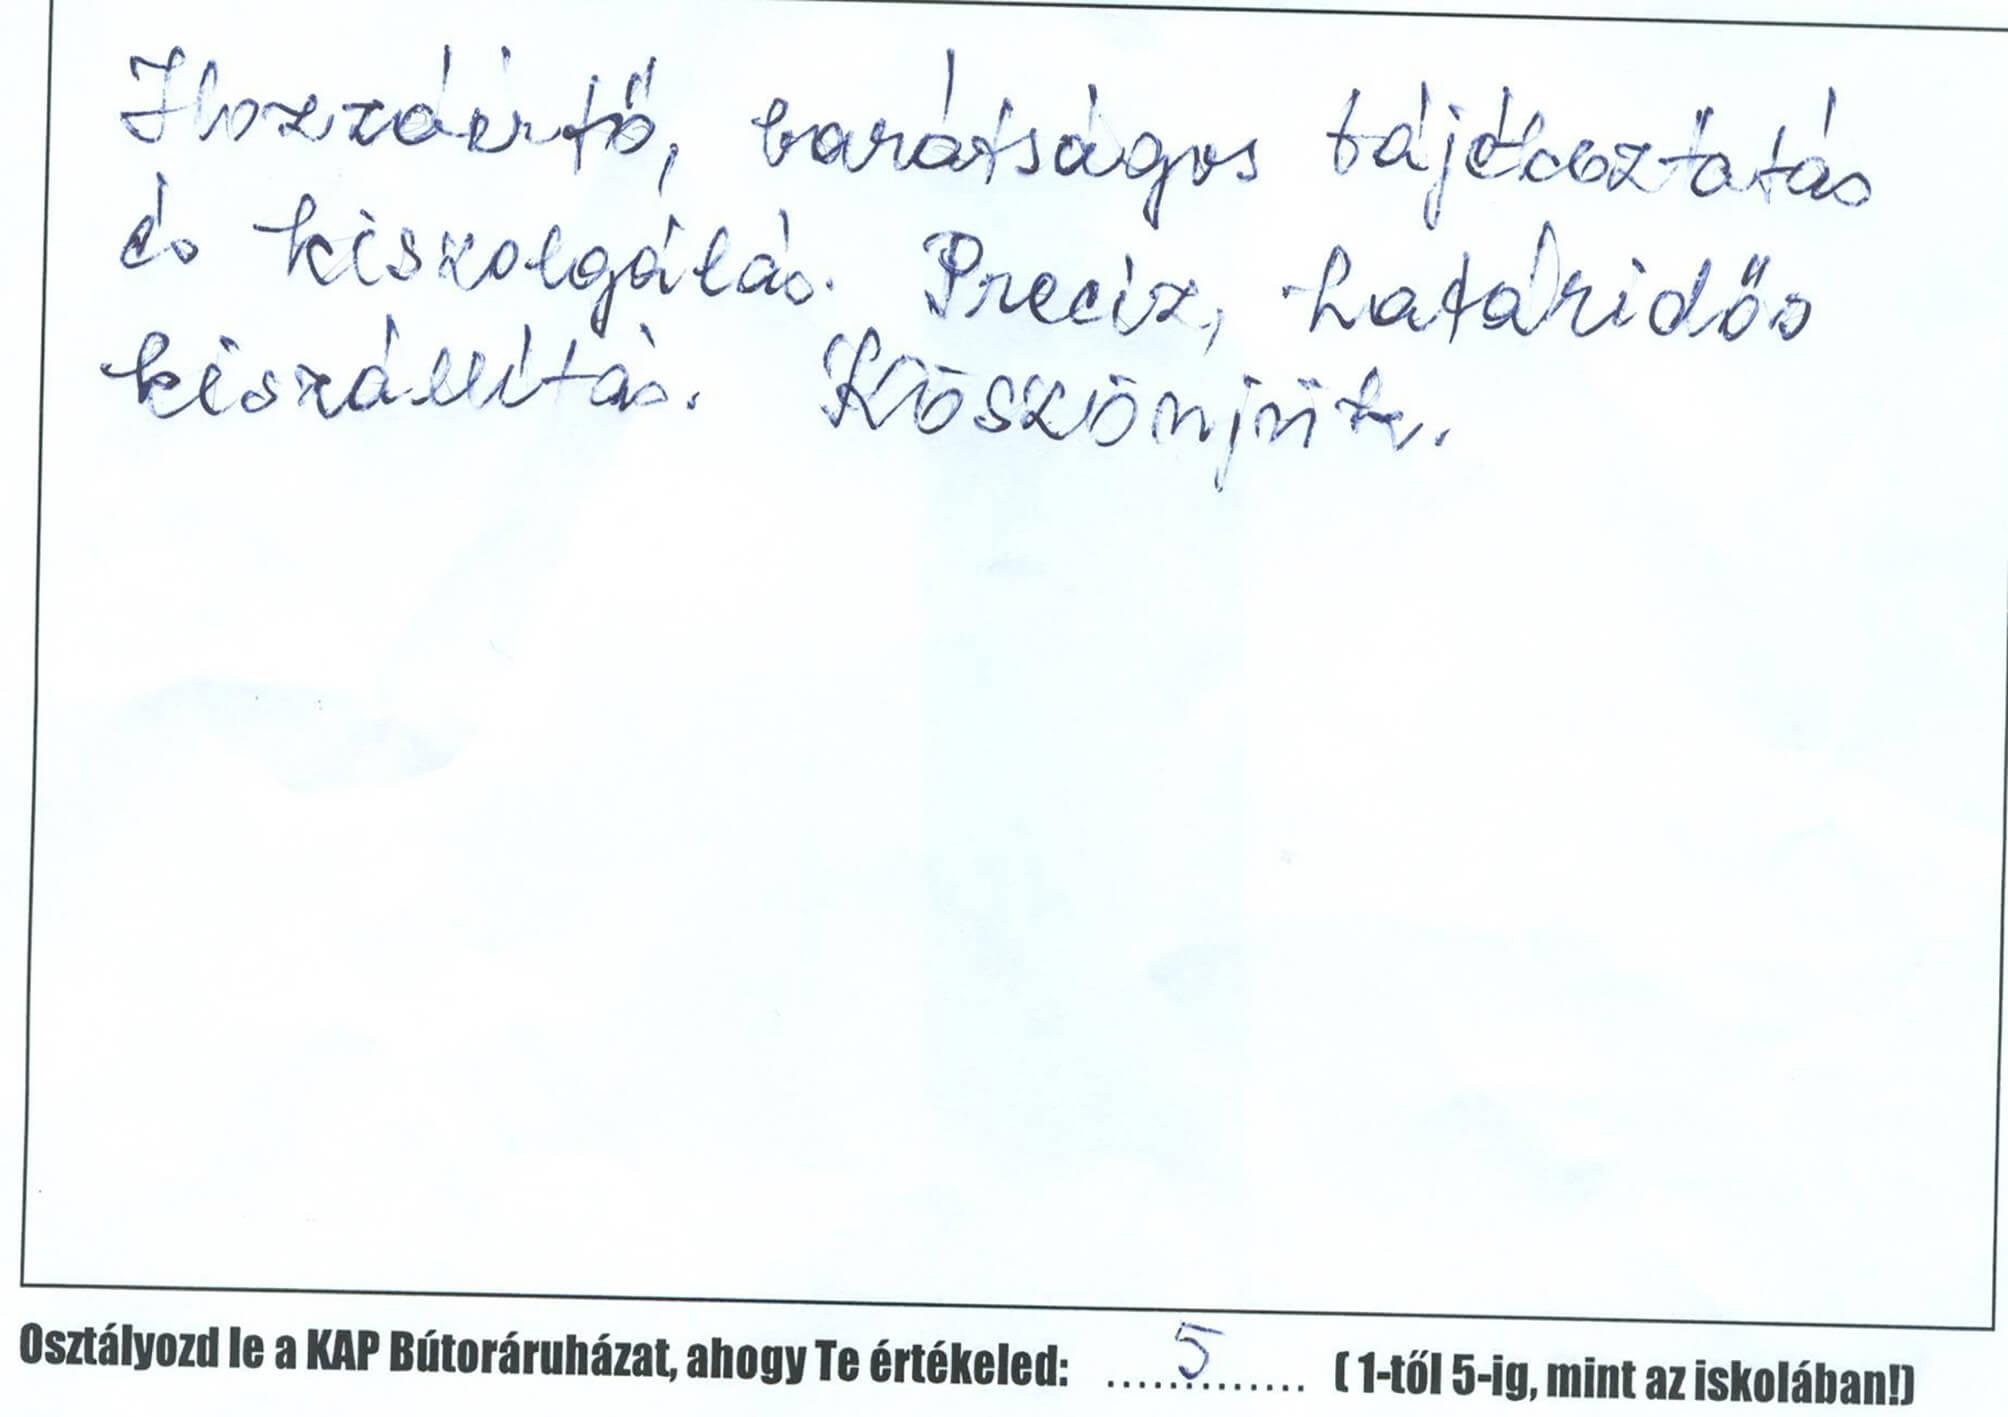 Hozzáértő, barátságos tájékoztatás
és kiszolgálás. Precíz, határidős
kiszállítás. Köszönjük.
Osztályozd le a KAP Bútoráruházat, ahogy Te értékeled: .....5....... ( 1-től 5-ig, mint az iskolában!)